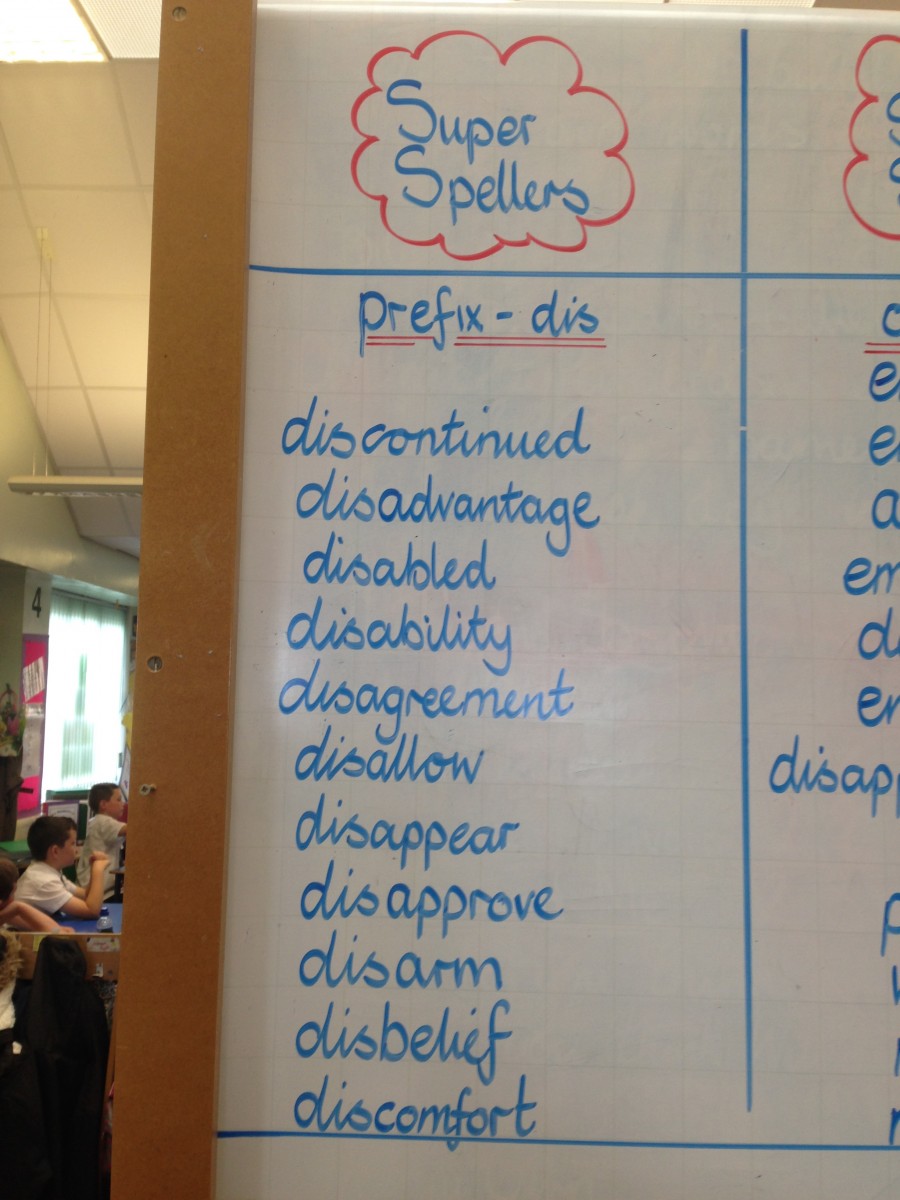 Super
Spellers
prefix - dis
discontinued
disadvantage
disabled
disability
disagreement
disallow
disappear
disapprove
disarm
disbelief
discomfort
4